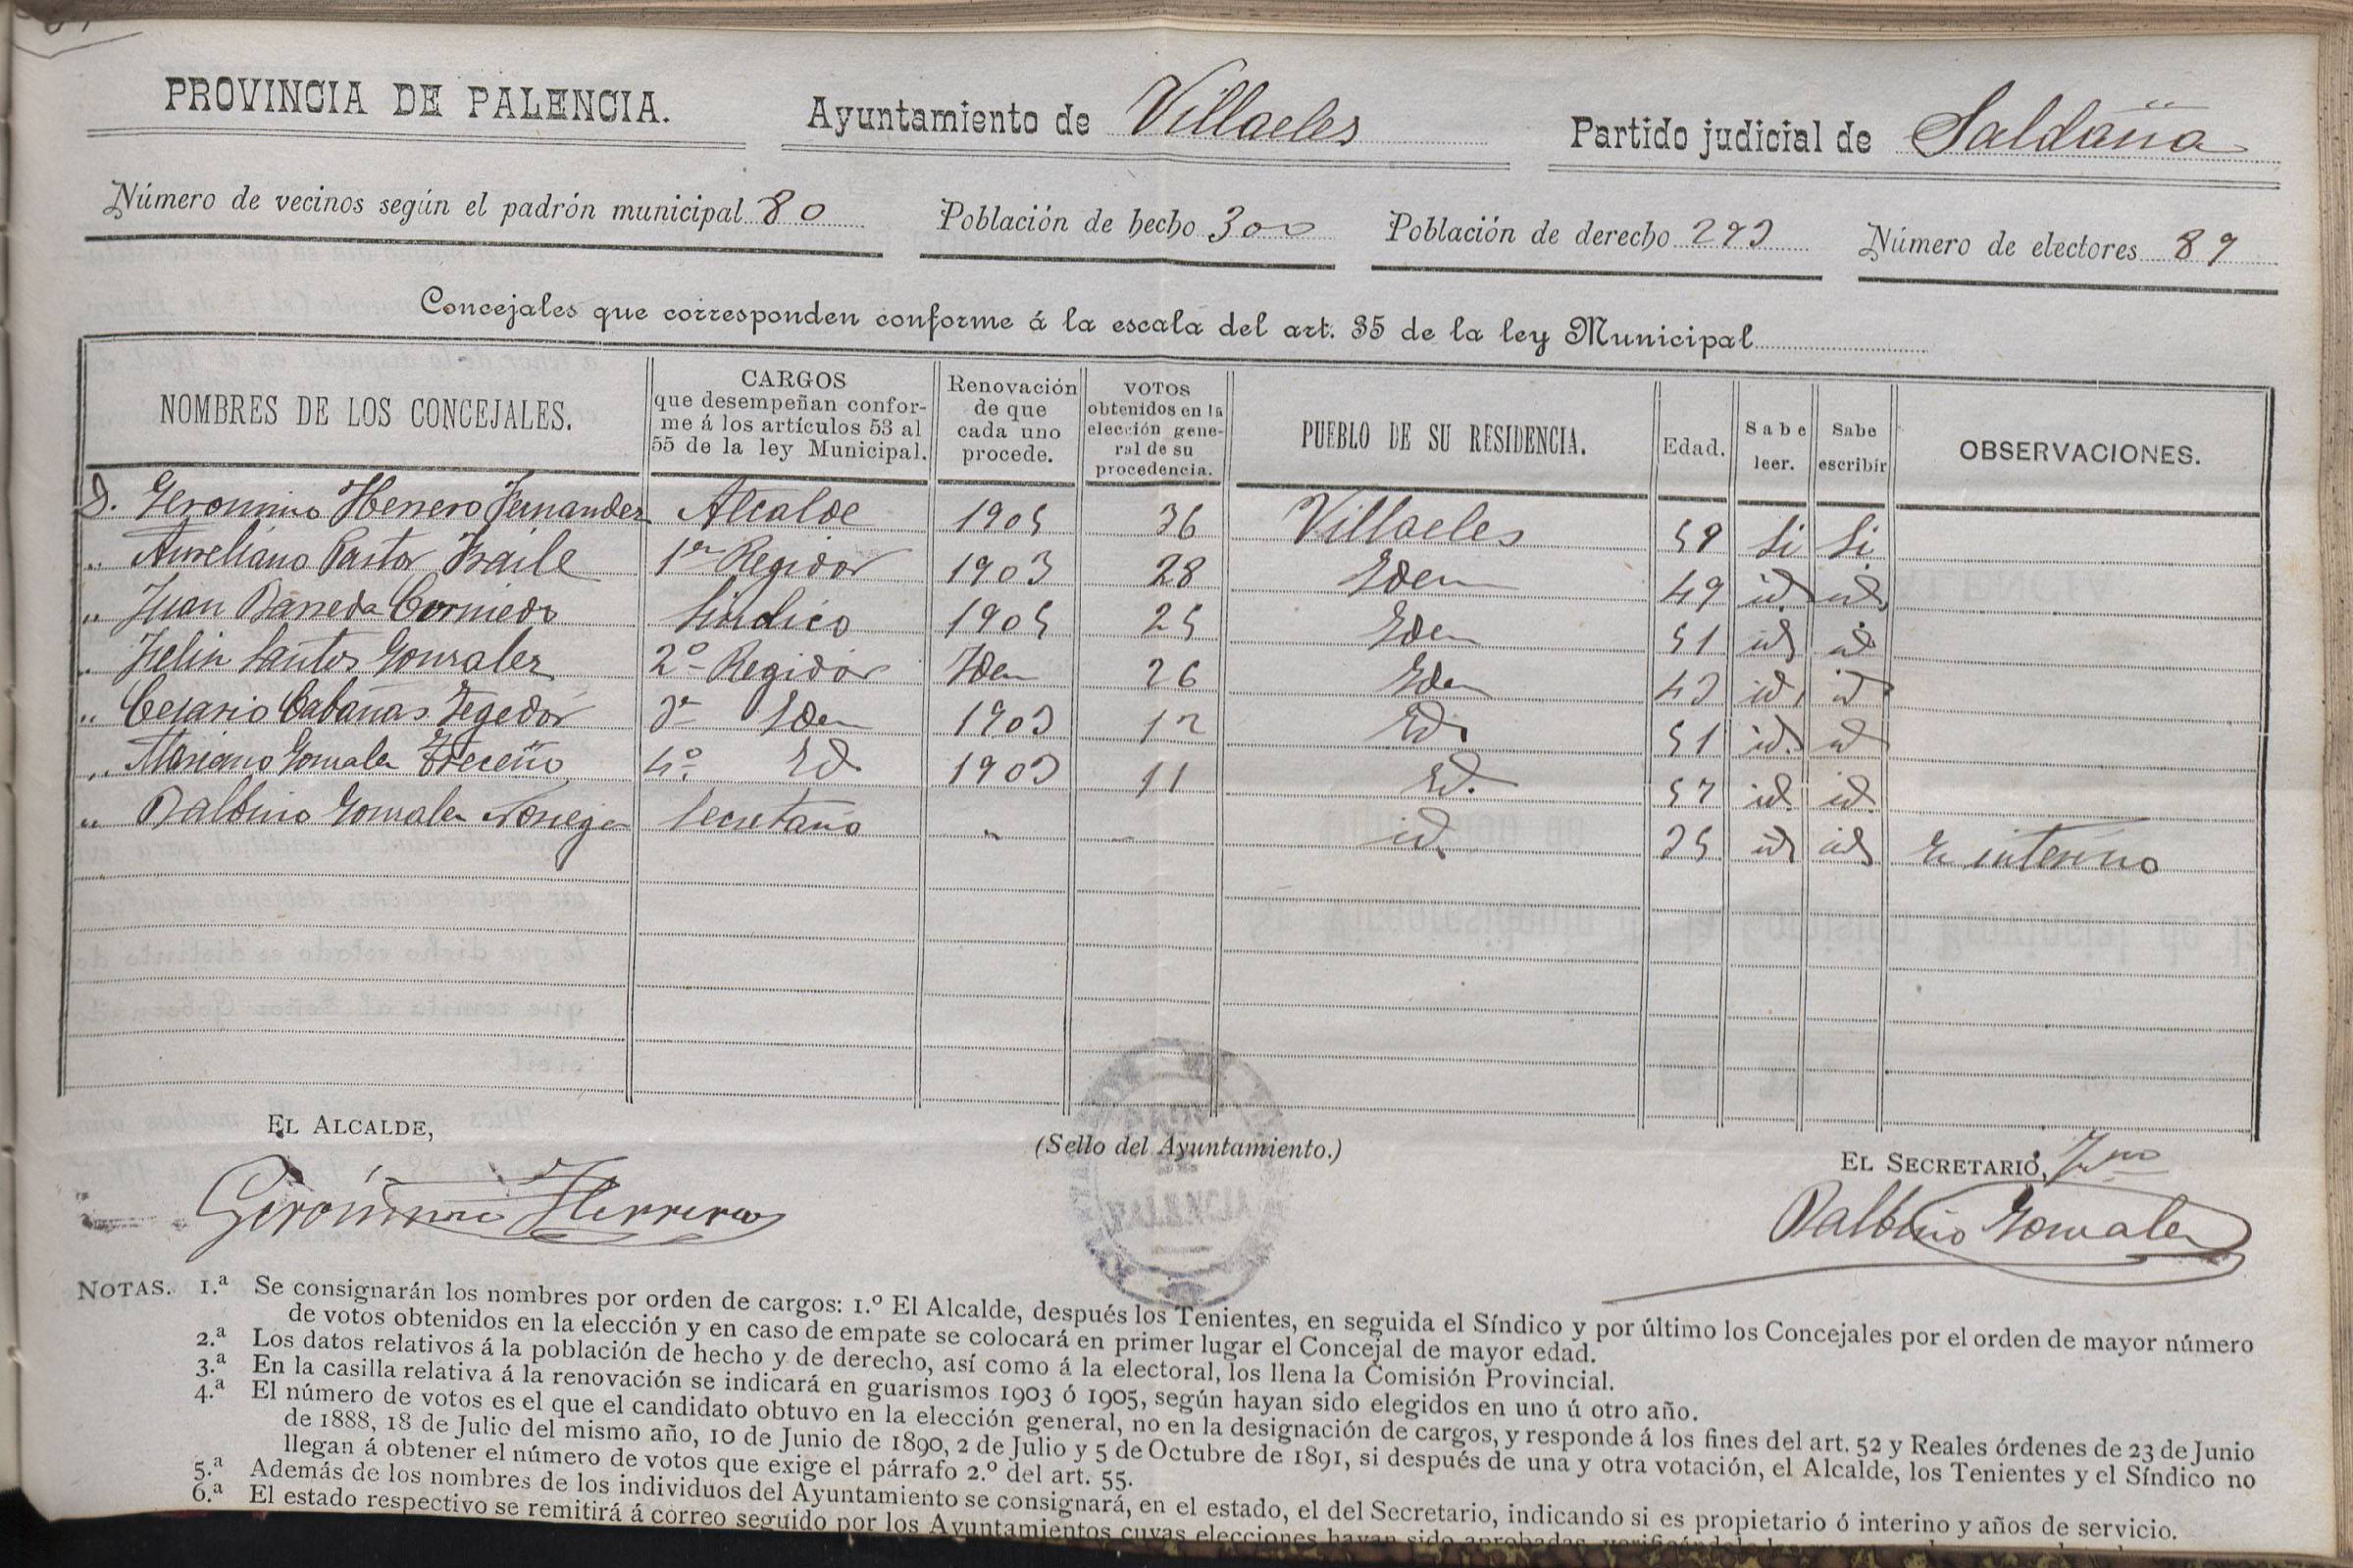 PROVINCIA DE PALENCIA. Ayuntamiento de Villaeles Partido judicial de Saldaña
Número de vecinos según el padrón municipal 80 Población de hecho 300 Población de derecho 293 Número de electores 89
Concejales que corresponden conforme á la escala del art. 35 de la ley Municipal
NOMBRES DE LOS CONCEJALES. CARGOS que desempeñan confor- me á los artículos 53 al 55 de la ley Municipal. Renovación de que cada uno procede. VOTOS obtenidos en la elección gene- ral de su procedencia. PUEBLO DE SU RESIDENCIA. Edad. Sabe leer. Sabe escribir OBSERVACIONES.
D. Geronimo Herrero Fernandez Alcalde 1905 36 Villaeles 59 Si Si
" Aureliano Pastor Fraile 1er Regidor 1903 28 Idem 49 id id
" Juan Barreda Corniedo Sindico 1905 25 Idem 51 id id
" Felix Santos Gonzalez 2º Regidor Idem 26 Idem 43 id id
" Cesario Cabañas Tegedor 3er Idem 1903 12 Id 51 id. id
" Mariano Gonzalez Treceño 4º Id 1903 11 Id. 57 id. id.
" Balbino Gonzalez Noriega Secretario " id. 25 id id Es interino
EL ALCALDE, (Sello del Ayuntamiento.) EL SECRETARIO, Ynno
Gerónimo Herrero Balbino Gonzalez
PALENCIA
NOTAS. 1.ª Se consignarán los nombres por orden de cargos: 1.º El Alcalde, después los Tenientes, en seguida el Síndico y por último los Concejales por el orden de mayor número
de votos obtenidos en la elección y en caso de empate se colocará en primer lugar el Concejal de mayor edad.
2.ª Los datos relativos á la población de hecho y de derecho, así como á la electoral, los llena la Comisión Provincial.
3.ª En la casilla relativa á la renovación se indicará en guarismos 1903 ó 1905, según hayan sido elegidos en uno ú otro año.
4.ª El número de votos es el que el candidato obtuvo en la elección general, no en la designación de cargos, y responde á los fines del art. 52 y Reales órdenes de 23 de Junio
de 1888, 18 de Julio del mismo año, 10 de Junio de 1890, 2 de Julio y 5 de Octubre de 1891, si después de una y otra votación, el Alcalde, los Tenientes y el Síndico no
llegan á obtener el número de votos que exige el párrafo 2.º del art. 55.
5.ª Además de los nombres de los individuos del Ayuntamiento se consignará, en el estado, el del Secretario, indicando si es propietario ó interino y años de servicio.
6.ª El estado respectivo se remitirá á correo seguido por los Ayuntamientos cuyas elecciones hayan sido aprobadas,